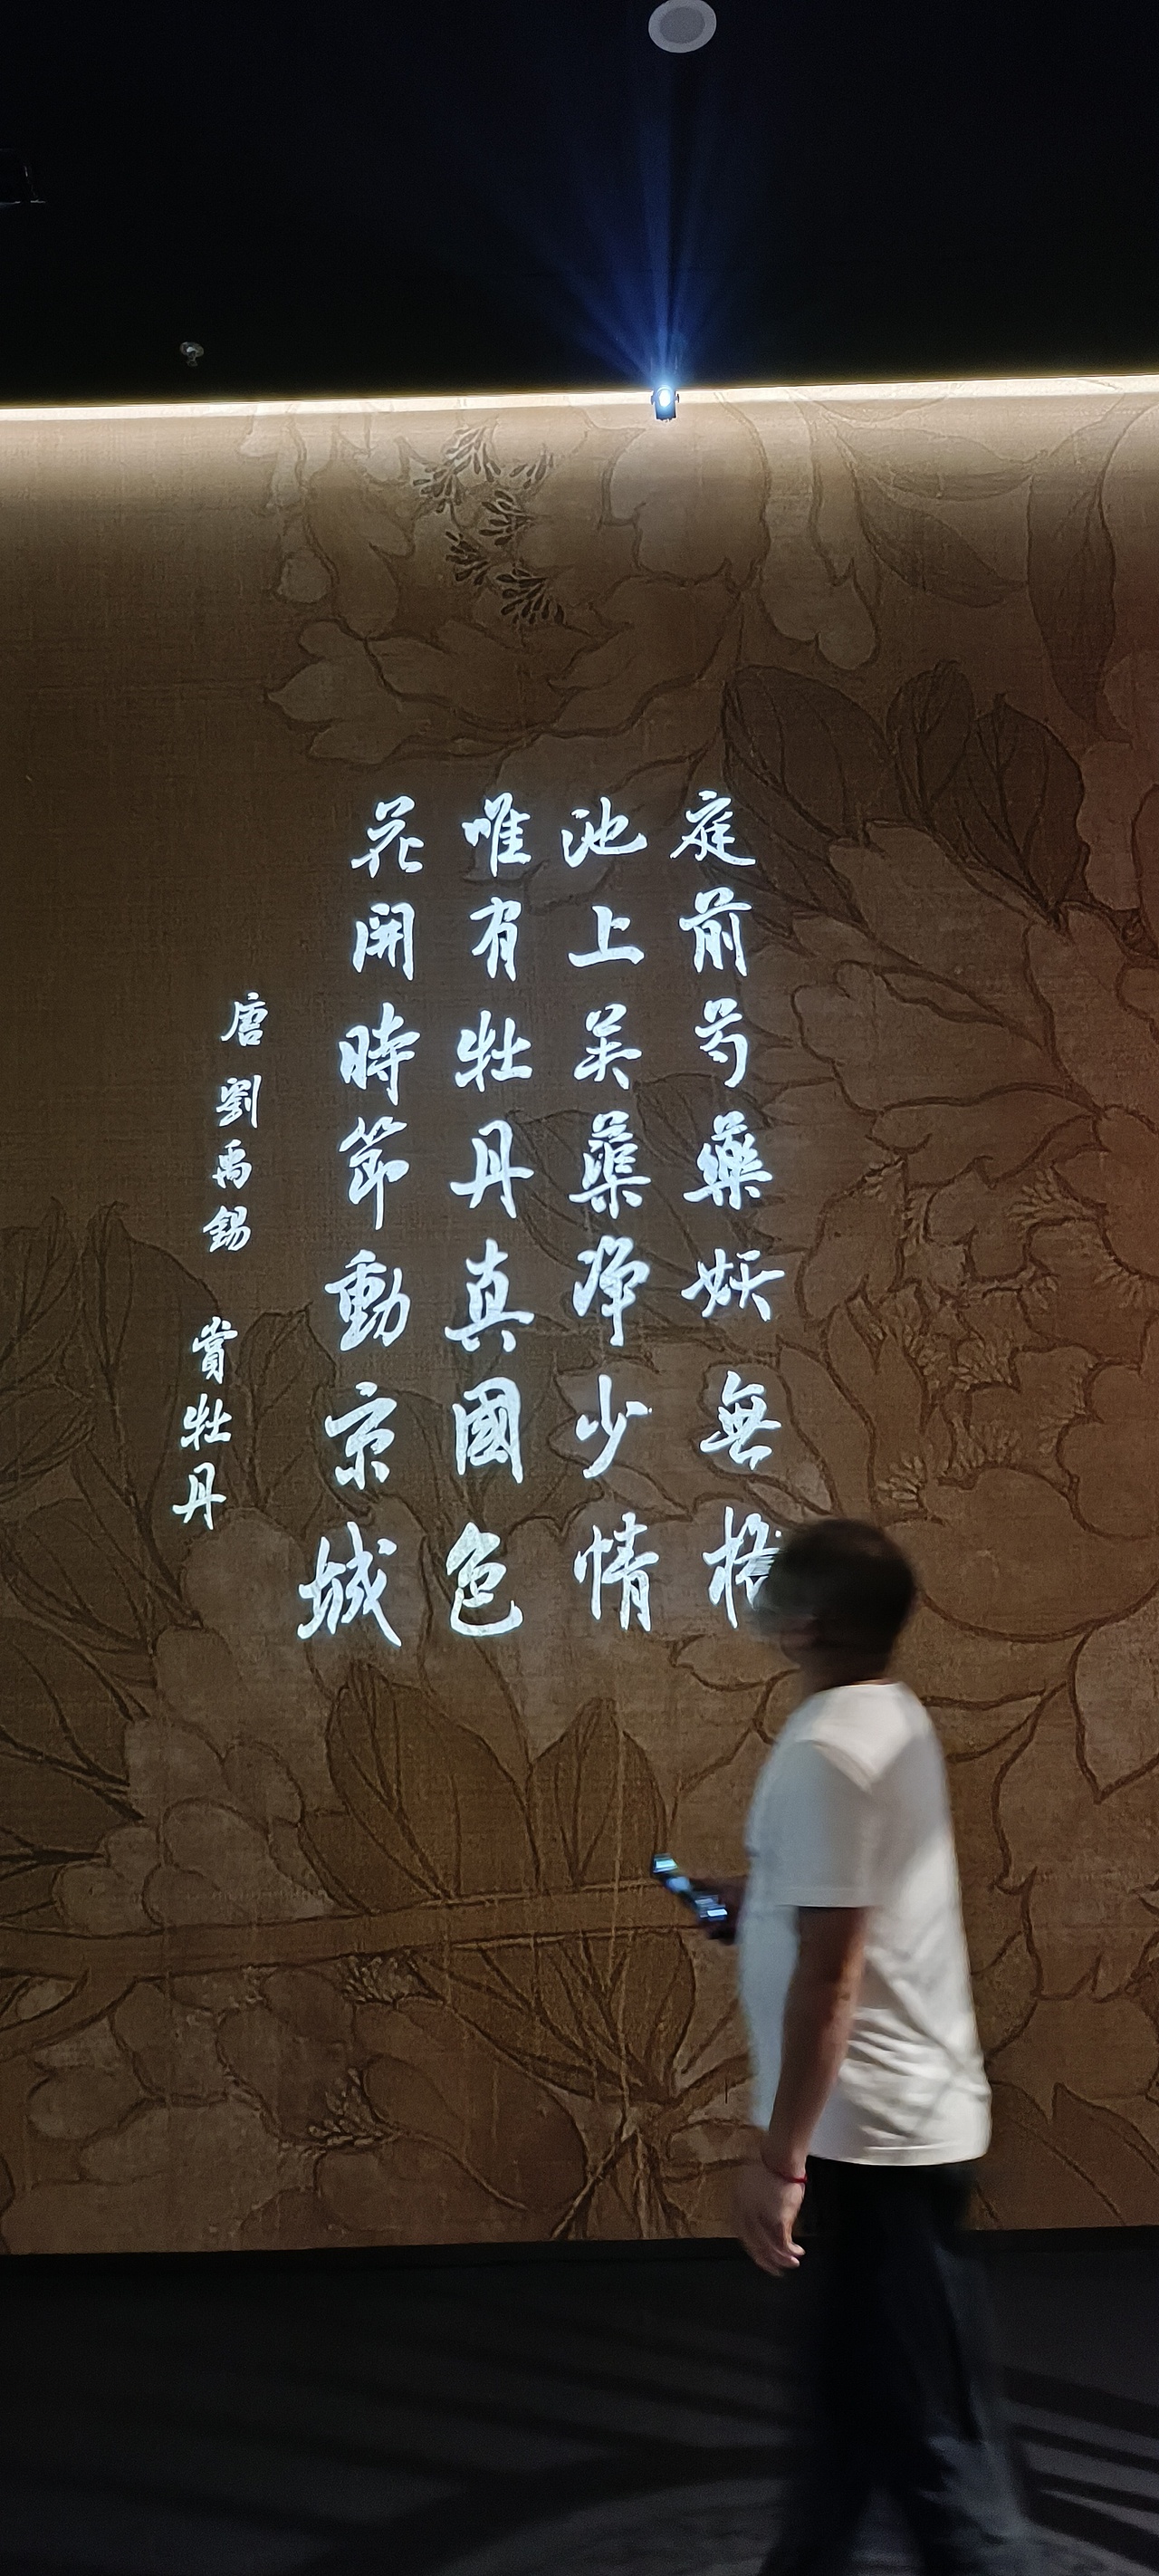 庭前芍藥妖無格
池上芙蕖净少情
唯有牡丹真國色
花開時節動京城
唐劉禹錫 賞牡丹